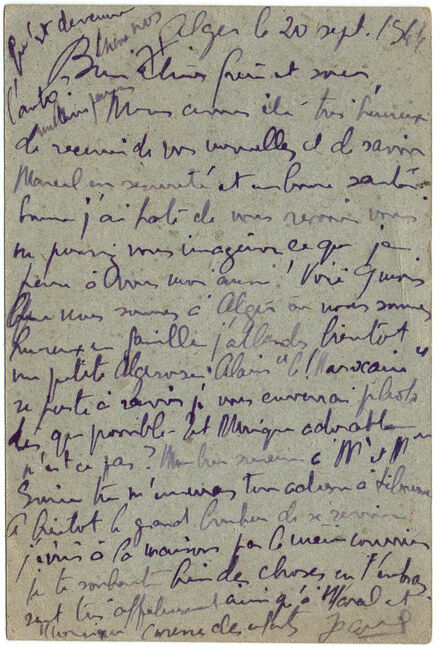 Qu'est devenue
l'auto
Alger le 20 sept. 1944
Bien chers frère et sœur
Nous avons été très heureux
de recevoir de vos nouvelles et de savoir
Marcel en sécurité et en bonne santé
j'ai hâte de vous revoir vous
ne pouvez vous imaginer ce que je
pense à vous moi aussi! Voici 9 mois
que nous sommes à Alger où nous sommes
heureux en famille j'attends bientôt
une petite Algéroise Alain "le Marocain"
se porte à ravir je vous enverrai photo
dès que possible. Et Monique adorable
n'est ce pas? Mon bon souvenir à Mr et Mme
tu m'enverras ton adresse à
à bientôt le grand bonheur de se revoir
j'écris à la maison par le même courrier
je te souhaite bien des choses en t'embras
sant très affectueusement ainsi qu'à Marcel et
Monique caresses des enfants